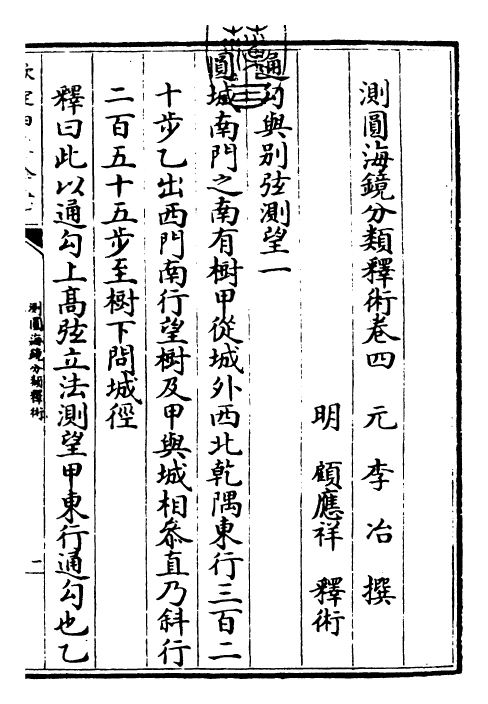 測圓海鏡分類釋術卷四　元　李冶　撰
明　顧應祥　釋術
通勾與别弦測望一
圓城南門之南有樹甲從城外西北乾隅東行三百二
十步乙出西門南行望樹及甲與城相叅直乃斜行
二百五十五步至樹下問城徑
釋曰此以通勾上髙弦立法測望甲東行通勾也乙
測圓海鏡分類釋術
二